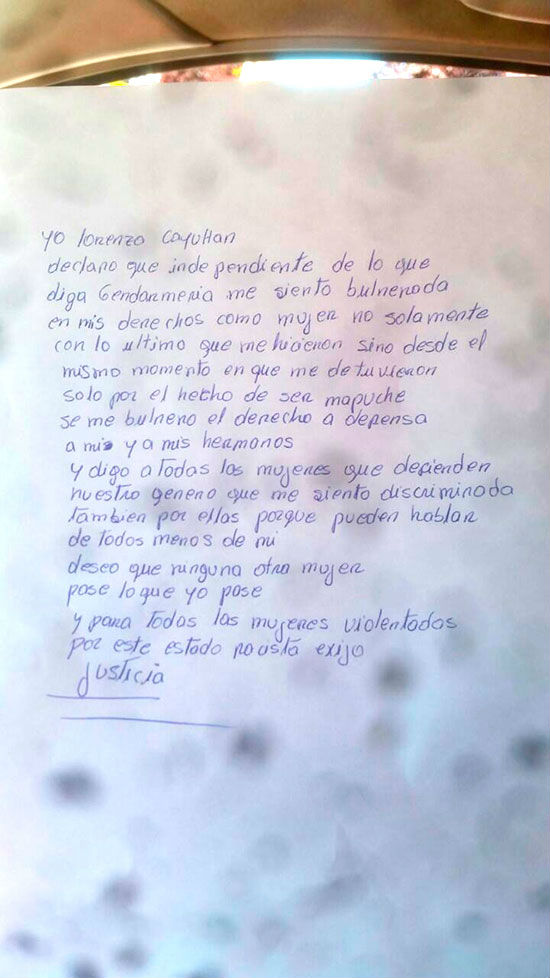 yo lorenza Cayuhan
declaro que independiente de lo que
diga Gendarmeria me siento bulnerada
en mis derechos como mujer no solamente
con lo ultimo que me hicieron sino desde el
mismo momento en que me detuvieron
solo por el hecho de ser mapuche
se me bulnero el derecho a depensa
a mis y a mis hermanos
y digo a todas las mujeres que defienden
nuestro genero que me siento discriminada
tambien por ellas porque pueden hablar
de todos menos de mi
deseo que ninguna otra mujer
pase lo que yo pase
y para todas las mujeres violentadas
por este estado exijo
Justicia